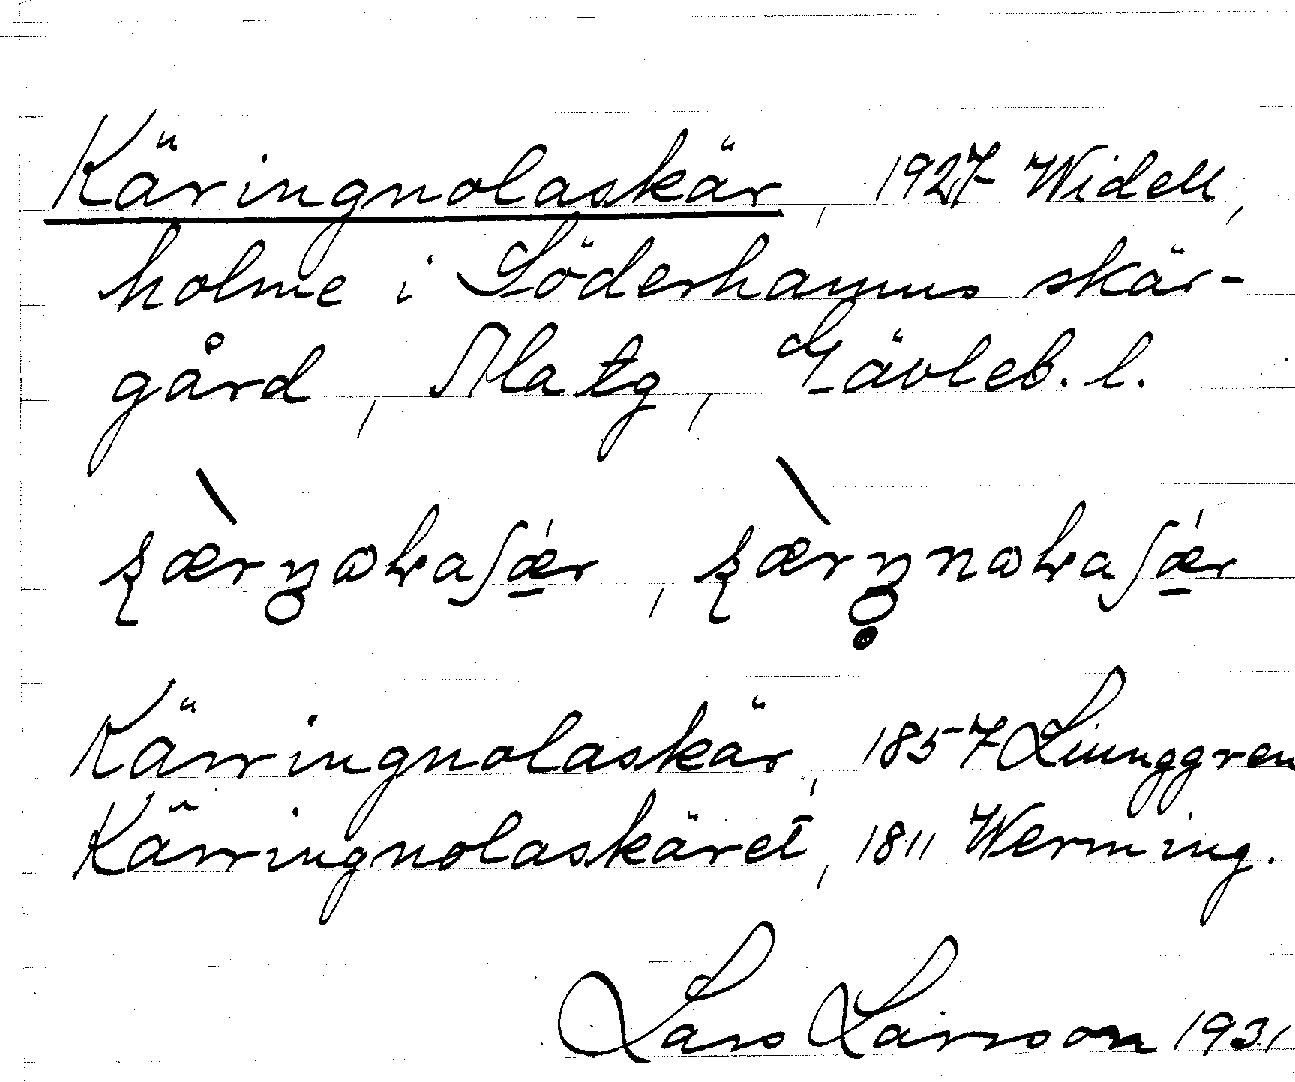 Käringnolaskär, 1927 Widell,
holme i Söderhamns skär-
gård, Platg, Gävleb. l.
Kärringnolaskär, 1857 Ljunggren
Kärringnolaskäret, 1811 Werming.
Lars Larsson 1931